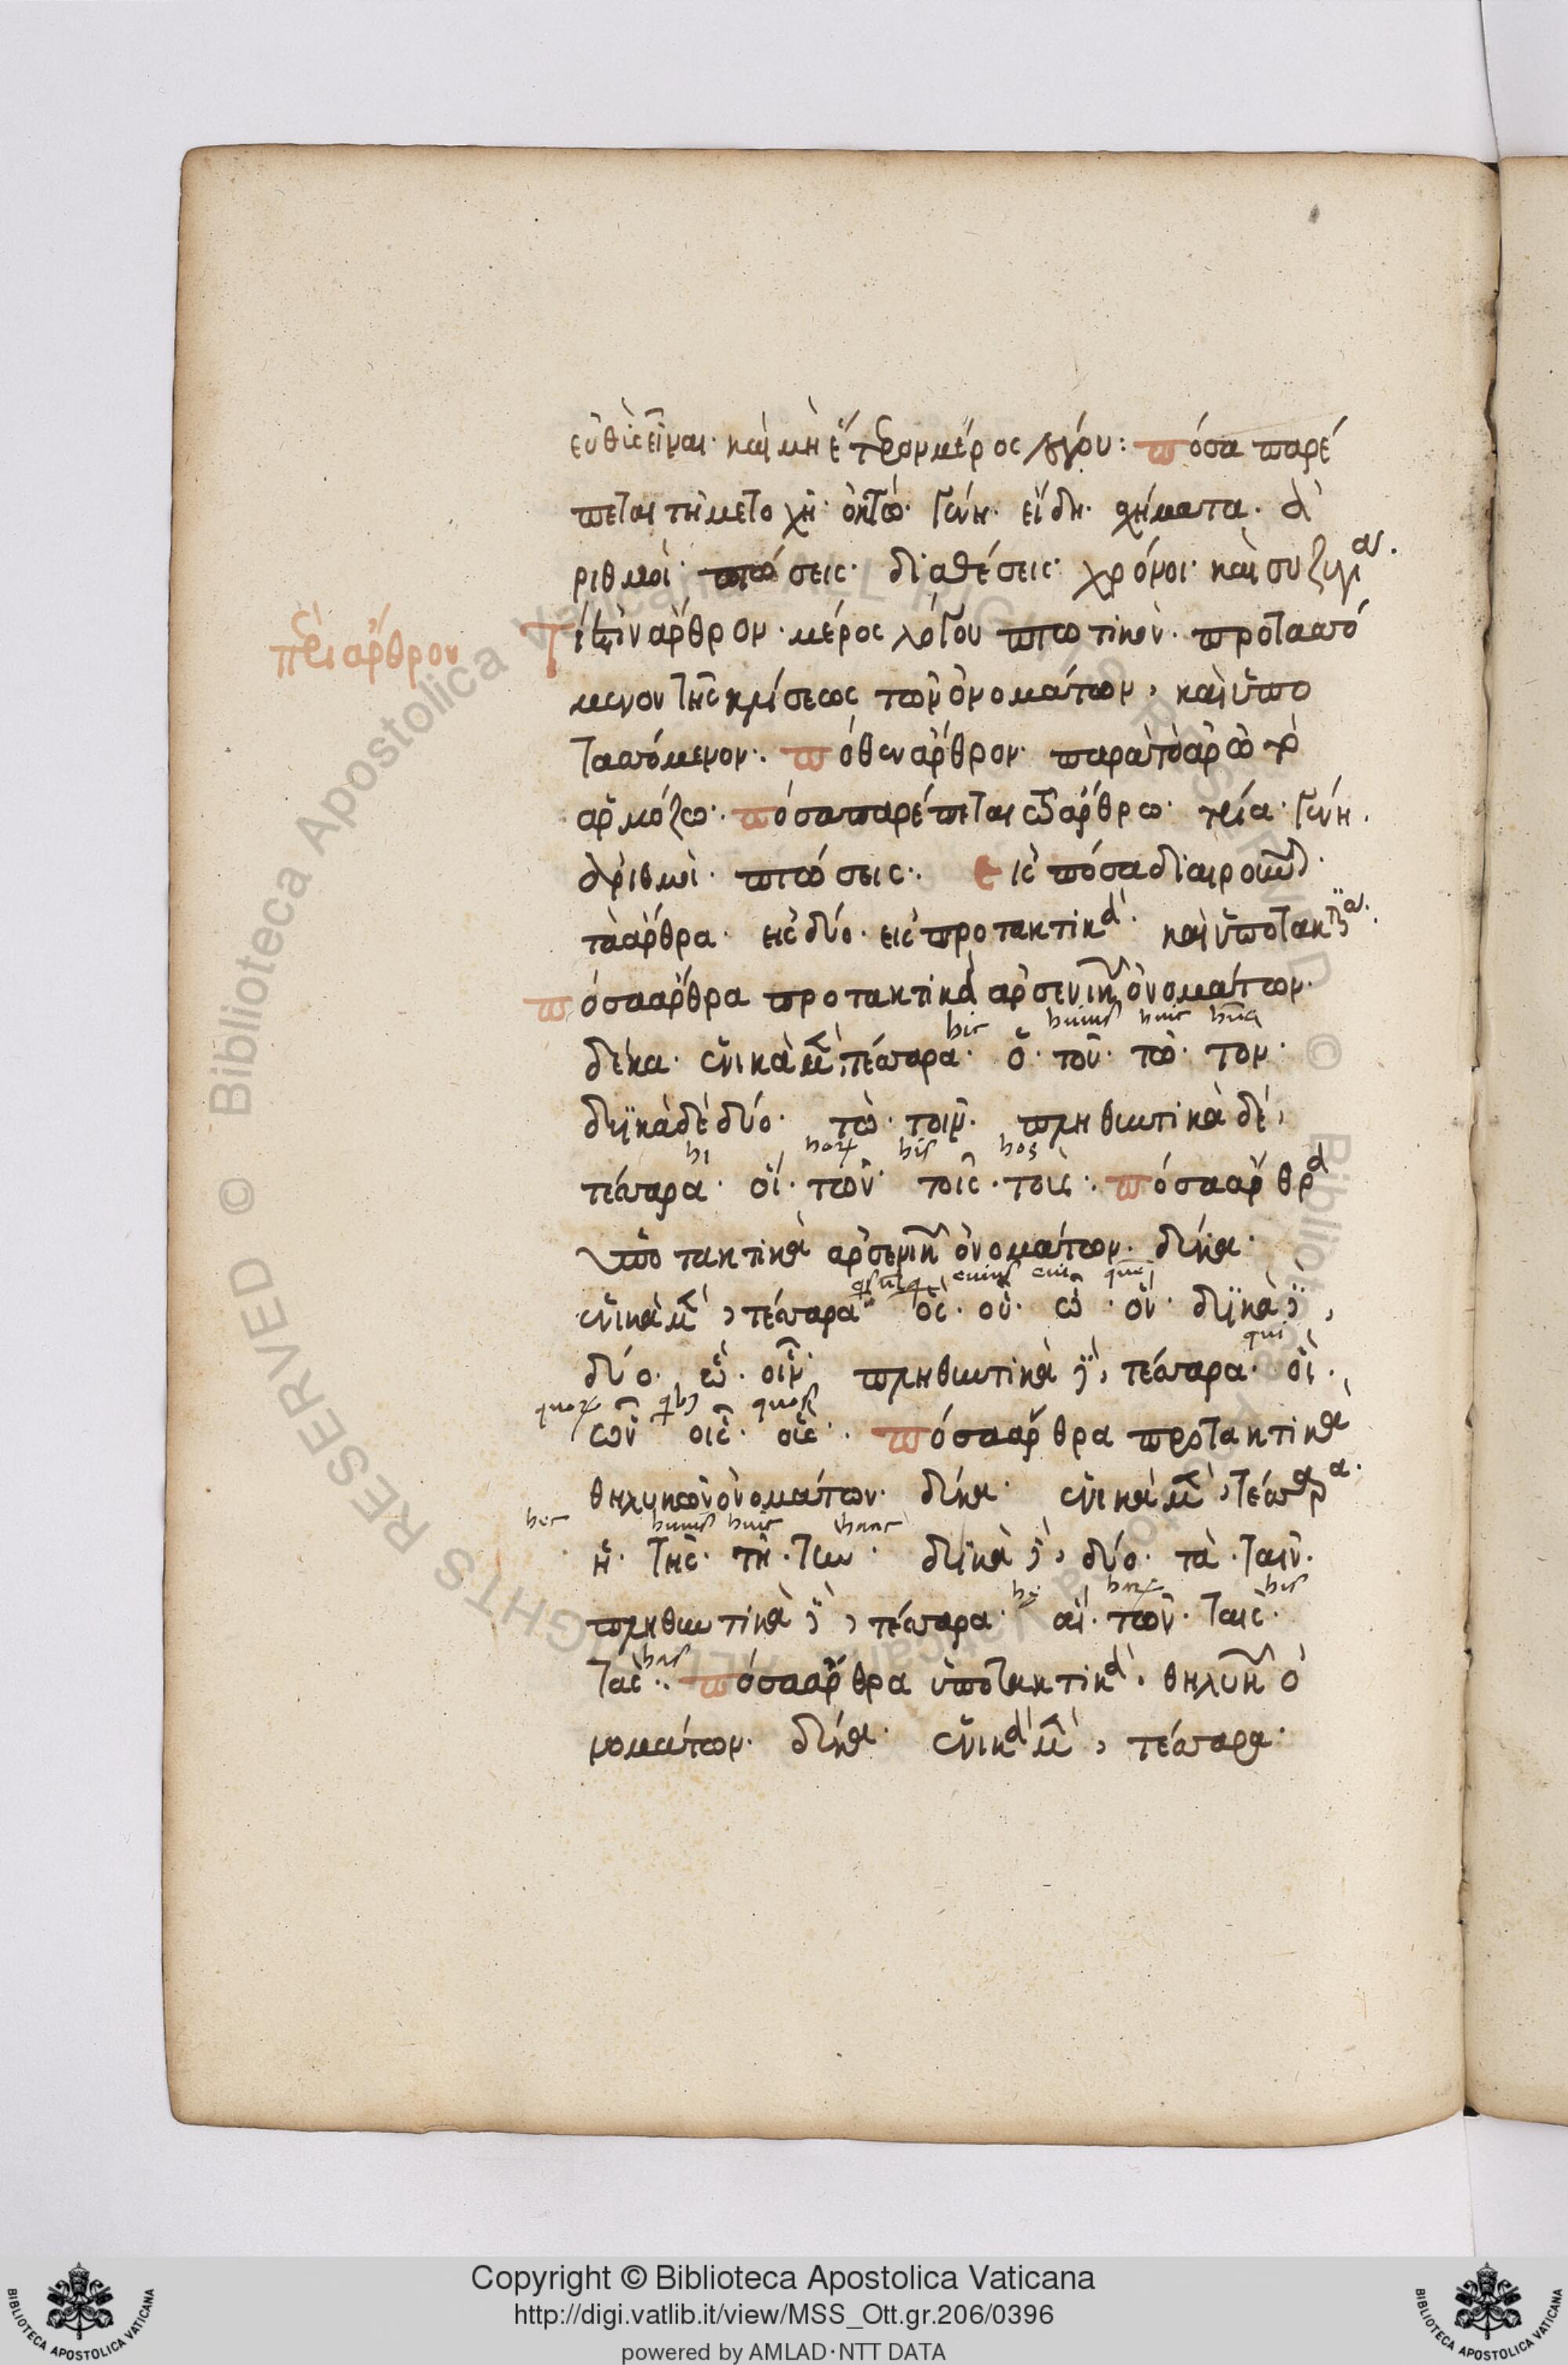 εὐθὺς εἶναι· καὶ μὴ ἕτερον μέρος λόγου: πόσα παρέ
πεται τῇ μετοχῇ· ὀκτώ· γένη· εἴδη· σχήματα· ἀ
ριθμοὶ· πτώσεις· διαθέσεις· χρόνοι· καὶ συζυγίαι.
περὶ ἄρθρου
τί ἐστὶν ἄρθρον· μέρος λόγου πτωτικὸν· προτασσό
μενον τῆς κλίσεως τῶν ὀνομάτων, καὶ ὑπο
τασσόμενον:. πόθεν ἄρθρον· παρὰ τὸ ἀρῶ τὸ
ἁρμόζω:. πόσα παρέπεται τῷ ἄρθρω· τρία· γένη.
ἀριθμοὶ· πτώσεις:. εἰς πόσα διαιροῦνται
τὰ ἄρθρα· εἰς δύο· εἰς προτακτικὰ· καὶ ὑποτακτικά:.
πόσα ἄρθρα προτακτικὰ ἀρσενικῶν ὀνομάτων·
hic huius huic hunc
δέκα· ἑνικὰ μὲν, τέσσαρα· ὁ· τοῦ· τῶ· τον·
δυϊκὰ δὲ δύο· τὼ· τοῖν· πληθυντικὰ δὲ,
hi horum his hos
τέσσαρα· οἱ· τῶν· τοῖς· τοὺς:. πόσα ἄρθρα
ὑποτακτικὰ ἀρσενικῶν ὀνομάτων· δέκα·
cuius cui quem
ἑνικὰ μὲν, τέσσαρα· ὃς· οὗ· ᾧ· ὃν· δυϊκὰ δὲ,
qui
δύο· ὣ· οἷν· πληθυντικὰ δὲ, τέσσαρα· οἳ·
quorum quibus quos
ὧν οἷς· οὓς:. πόσα ἄρθρα προτακτικὰ
θηλυκῶν ὀνομάτων· δέκα· ἑνικὰ μὲν, τέσσαρα·
hec huius huic hanc
ἡ· τῆς· τῇ· την· δυϊκὰ δὲ, δύο· τὰ· ταῖν·
he harum his
πληθυντικὰ δὲ, τέσσαρα· αἱ· τῶν· ταῖς·
has
τὰς:. πόσα ἄρθρα ὑποτακτικὰ· θηλυκῶν ὀ
νομάτων· δέκα· ἑνικὰ μὲν, τέσσαρα·
Copyright © Biblioteca Apostolica Vaticana
http://digi.vatlib.it/view/MSS_Ott.gr.206/0396
powered by AMLAD·NTT DATA